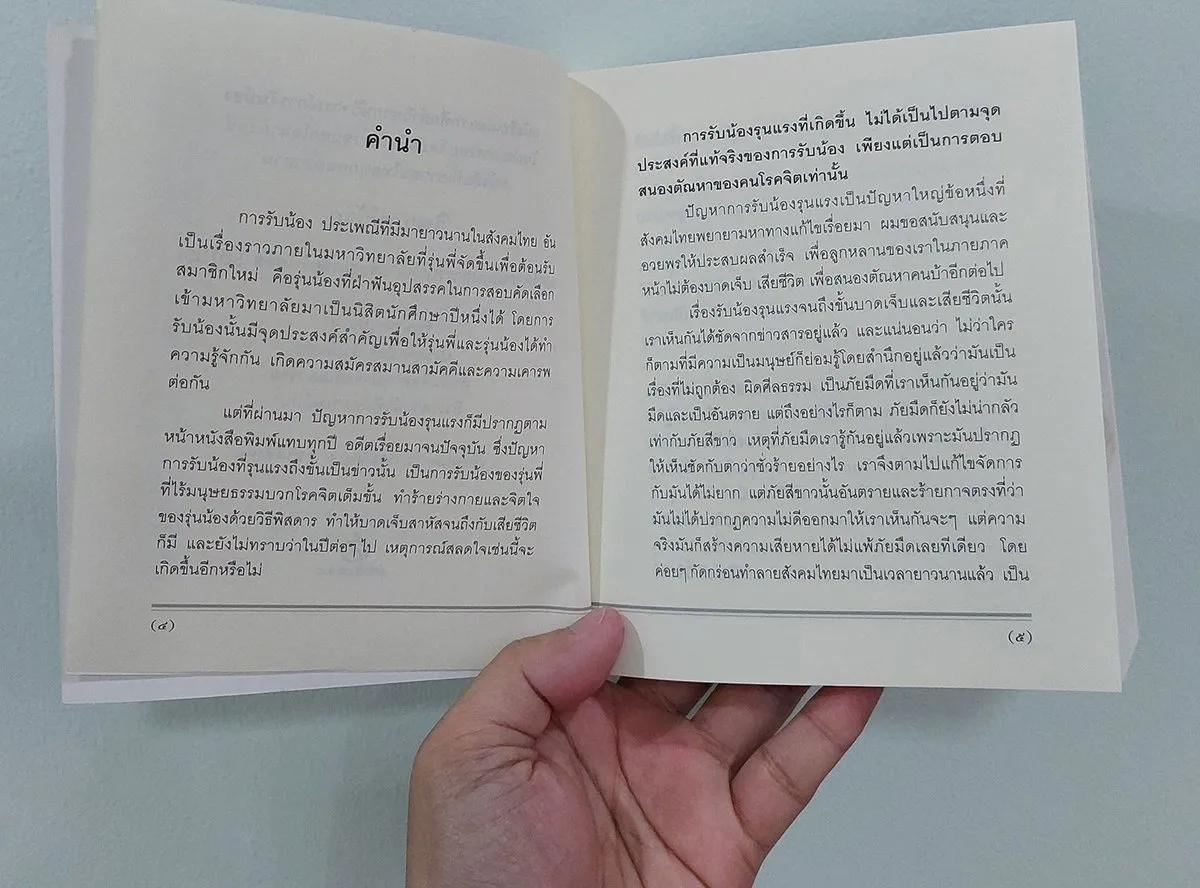 คำนำ
การรับน้อง ประเพณีที่มีมายาวนานในสังคมไทย อัน
เป็นเรื่องราวภายในมหาวิทยาลัยที่รุ่นพี่จัดขึ้นเพื่อต้อนรับ
สมาชิกใหม่ คือรุ่นน้องที่ฝ่าฟันอุปสรรคในการสอบคัดเลือก
เข้ามหาวิทยาลัยมาเป็นนิสิตนักศึกษาปีหนึ่งได้ โดยการ
รับน้องนั้นมีจุดประสงค์สำคัญเพื่อให้รุ่นพี่และรุ่นน้องได้ทำ
ความรู้จักกัน เกิดความสมัครสมานสามัคคีและความเคารพ
ต่อกัน
แต่ที่ผ่านมา ปัญหาการรับน้องรุนแรงก็มีปรากฏตาม
หน้าหนังสือพิมพ์แทบทุกปี อดีตเรื่อยมาจนปัจจุบัน ซึ่งปัญหา
การรับน้องที่รุนแรงถึงขั้นเป็นข่าวนั้น เป็นการรับน้องของรุ่นพี่
ที่ไร้มนุษยธรรมบวกโรคจิตเต็มขั้น ทำร้ายร่างกายและจิตใจ
ของรุ่นน้องด้วยวิธีพิสดาร ทำให้บาดเจ็บสาหัสจนถึงกับเสียชีวิต
ก็มี และยังไม่ทราบว่าในปีต่อๆ ไป เหตุการณ์สลดใจเช่นนี้จะ
เกิดขึ้นอีกหรือไม่
(๔)
การรับน้องรุนแรงที่เกิดขึ้น ไม่ได้เป็นไปตามจุด
ประสงค์ที่แท้จริงของการรับน้อง เพียงแต่เป็นการตอบ
สนองตัณหาของคนโรคจิตเท่านั้น
ปัญหาการรับน้องรุนแรงเป็นปัญหาใหญ่ข้อหนึ่งที่
สังคมไทยพยายามหาทางแก้ไขเรื่อยมา ผมขอสนับสนุนและ
อวยพรให้ประสบผลสำเร็จ เพื่อลูกหลานของเราในภายภาค
หน้าไม่ต้องบาดเจ็บ เสียชีวิต เพื่อสนองตัณหาคนบ้าอีกต่อไป
เรื่องรับน้องรุนแรงจนถึงขั้นบาดเจ็บและเสียชีวิตนั้น
เราเห็นกันได้ชัดจากข่าวสารอยู่แล้ว และแน่นอนว่า ไม่ว่าใคร
ก็ตามที่มีความเป็นมนุษย์ก็ย่อมรู้โดยสำนึกอยู่แล้วว่ามันเป็น
เรื่องที่ไม่ถูกต้อง ผิดศีลธรรม เป็นภัยมืดที่เราเห็นกันอยู่ว่ามัน
มืดและเป็นอันตราย แต่ถึงอย่างไรก็ตาม ภัยมืดก็ยังไม่น่ากลัว
เท่ากับภัยสีขาว เหตุที่ภัยมืดเรารู้กันอยู่แล้วเพราะมันปรากฏ
ให้เห็นชัดกับตาว่าชั่วร้ายอย่างไร เราจึงตามไปแก้ไขจัดการ
กับมันได้ไม่ยาก แต่ภัยสีขาวนั้นอันตรายและร้ายกาจตรงที่ว่า
มันไม่ได้ปรากฏความไม่ดีออกมาให้เราเห็นกันจะๆ แต่ความ
จริงมันก็สร้างความเสียหายได้ไม่แพ้ภัยมืดเลยทีเดียว โดย
ค่อยๆ กัดกร่อนทำลายสังคมไทยมาเป็นเวลายาวนานแล้ว เป็น
(๕)